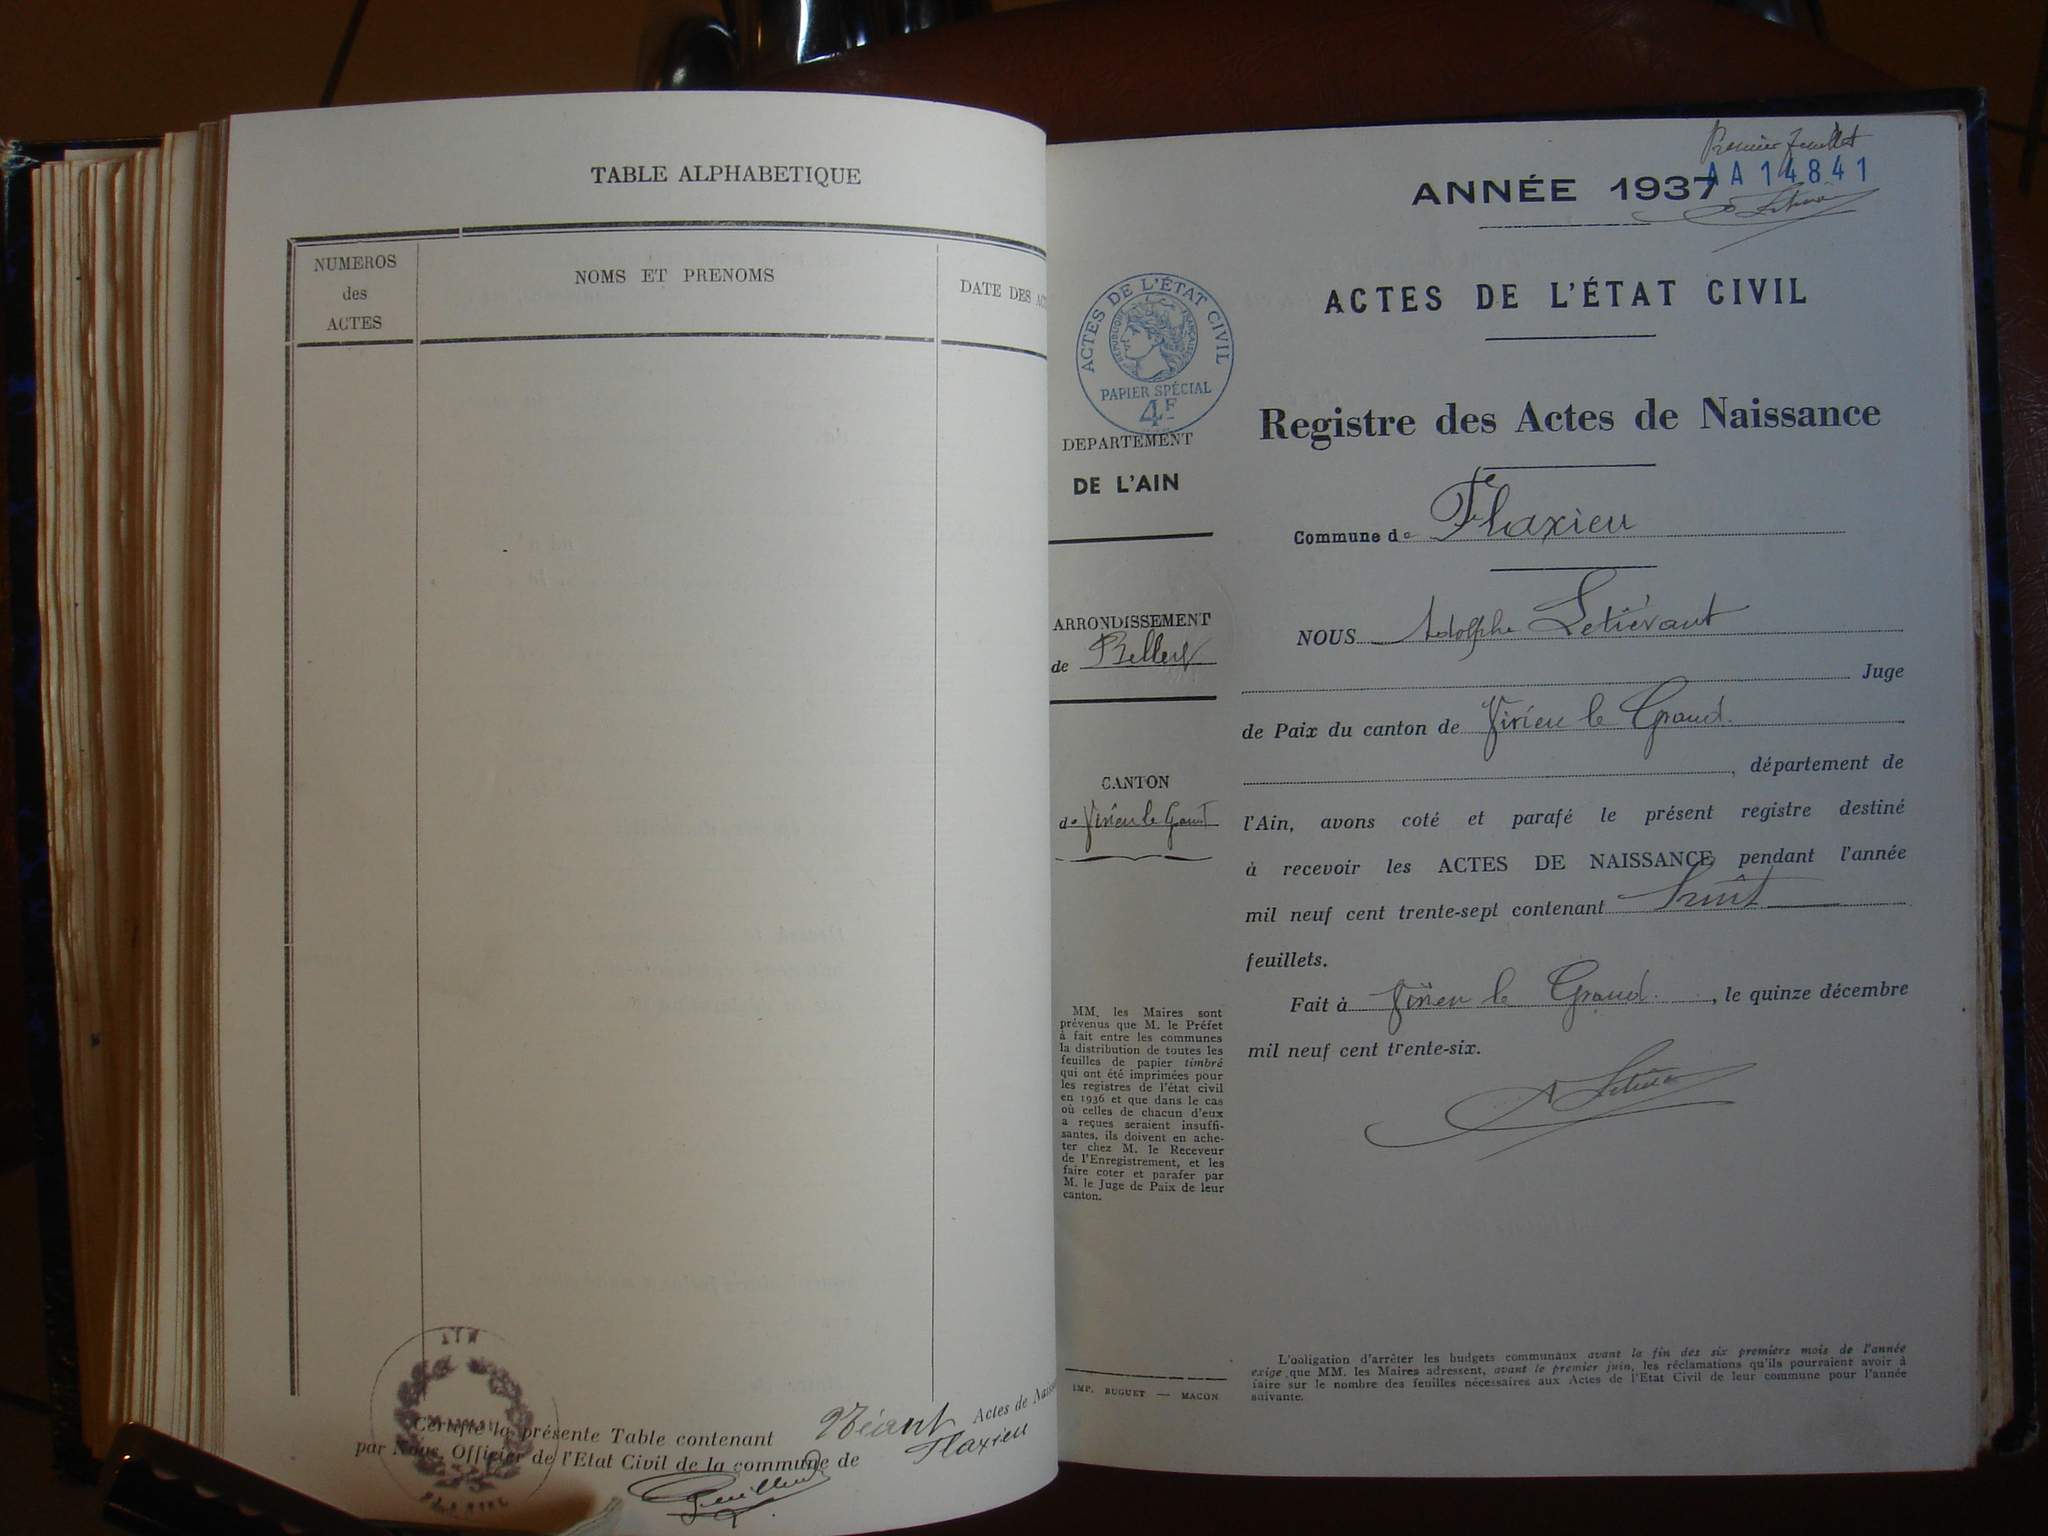 TABLE ALPHABETIQUE
NUMEROS
des
ACTES
NOMS ET PRENOMS
DATE DES AC
Certifié la présente Table contenant Néant Actes de Naiss
par Nous, Officier de l'Etat Civil de la commune de Flaxieu
Premier feuillet
AA14841
ANNÉE 1937
ACTES DE L'ÉTAT CIVIL
ACTES DE L'ÉTAT CIVIL
RÉPUBLIQUE FRANÇAISE
PAPIER SPÉCIAL
4F
DEPARTEMENT
DE L'AIN
ARRONDISSEMENT
de Belley
CANTON
de Virieu le Grand
MM. les Maires sont
prévenus que M. le Préfet
à fait entre les communes
la distribution de toutes les
feuilles de papier timbré
qui ont été imprimées pour
les registres de l'état civil
en 1936 et que dans le cas
où celles de chacun d'eux
a reçues seraient insuffi-
santes, ils doivent en ache-
ter chez M. le Receveur
de l'Enregistrement, et les
faire coter et parafer par
M. le Juge de Paix de leur
canton.
IMP. BUGUET — MACON
Registre des Actes de Naissance
Commune de Flaxieu
NOUS Adolphe Letiévant
Juge
de Paix du canton de Virieu le Grand
, département de
l'Ain, avons coté et parafé le présent registre destiné
à recevoir les ACTES DE NAISSANCE pendant l'année
mil neuf cent trente-sept contenant huit
feuillets.
Fait à Virieu le Grand , le quinze décembre
mil neuf cent trente-six.
L'obligation d'arrêter les budgets communaux avant la fin des six premiers mois de l'année
exige que MM. les Maires adressent, avant le premier juin, les réclamations qu'ils pourraient avoir à
faire sur le nombre des feuilles nécessaires aux Actes de l'Etat Civil de leur commune pour l'année
suivante.